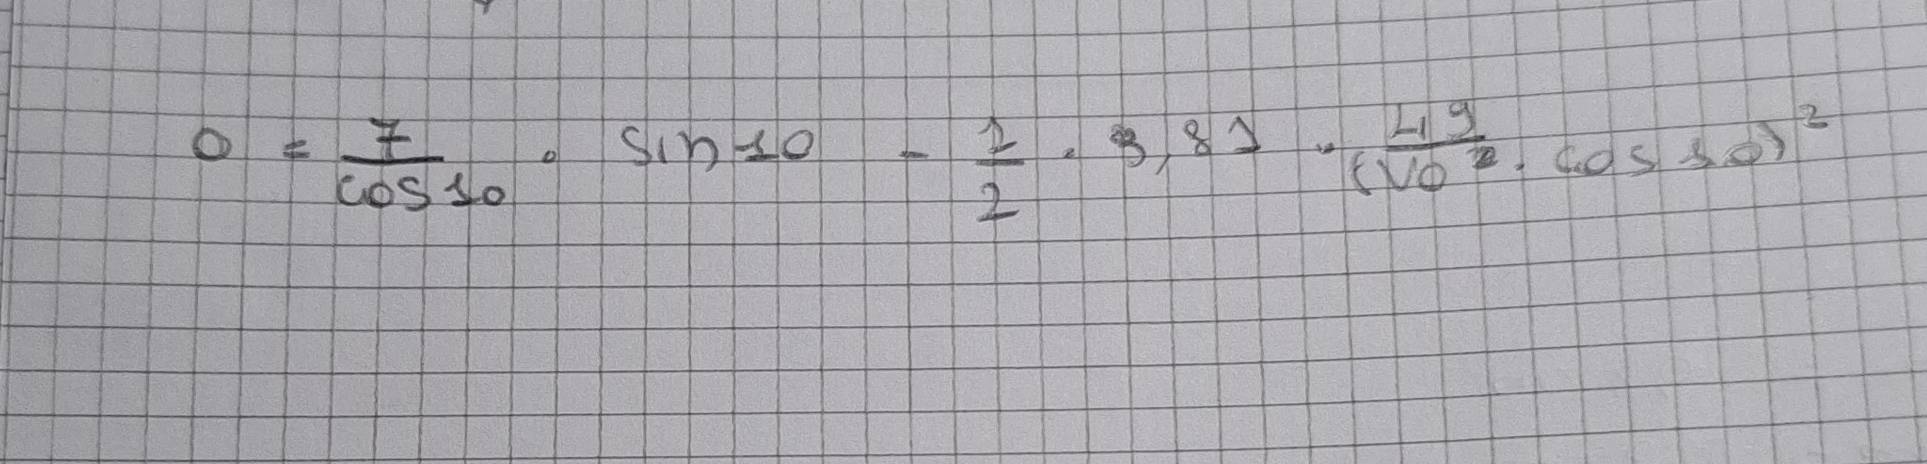 0 = 7/cos10 · sin10 - 1/2 · 9,81 · 49/(v0². cos 10)²